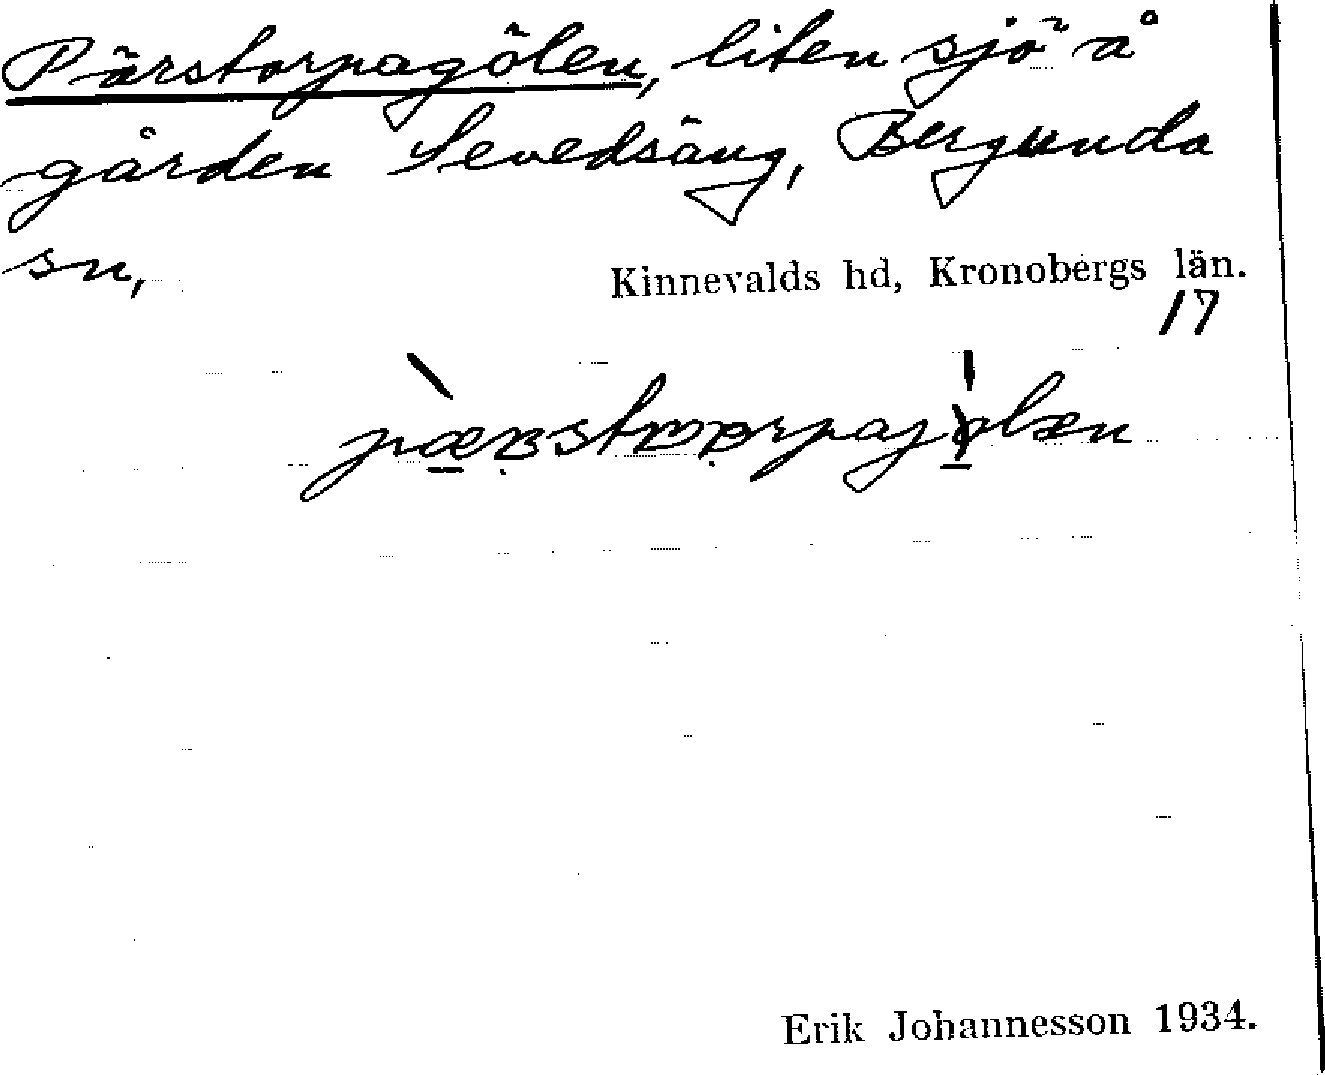 Pärstorpagölen, liten sjö å
gården Sevedsäng, Bergunda
sn,
Kinnevalds hd, Kronobergs län.
17
Erik Johannesson 1934.